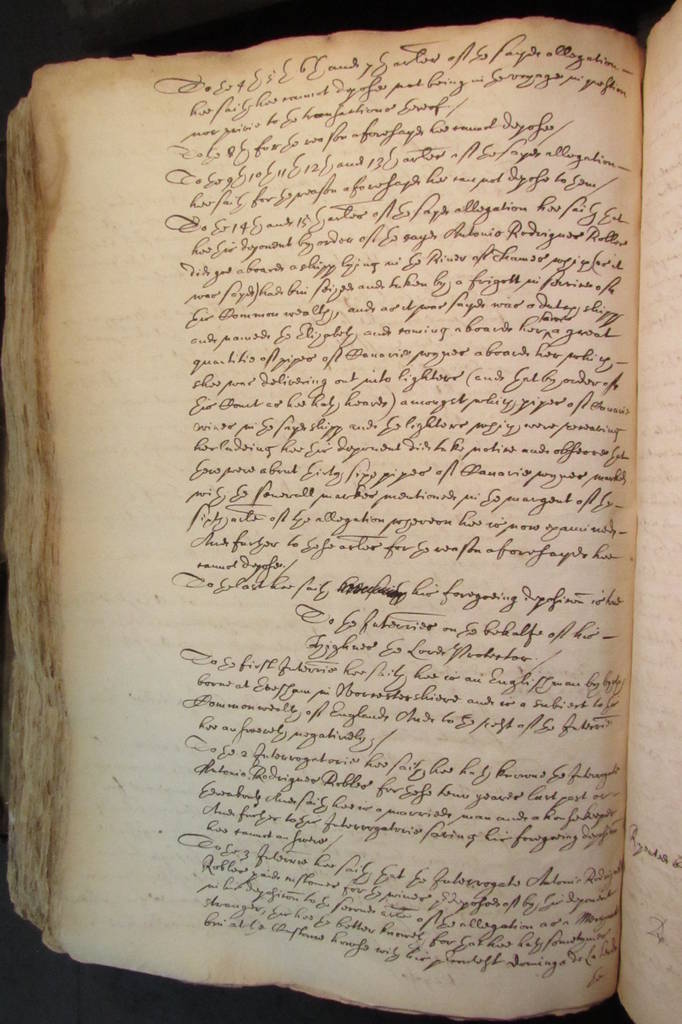 To the 4th 5th 6th and 7th arles of the sayd allegation
hee saith hee cannot depose not being in the voyage in question
nor privie to the transactions thereof./
To the 8th for the reason aforesayd hee cannot depose/
To the 9th 10th 11th 12th and 13th arles of the sayd allegation
hee saith for the reason aforesayd hee can not depose to them/
To the 14th and 15th arles of the sayd allegation hee saith that
hee this deponent by order of the sayd Antonio Rodrigues Robles
did goe aboard a shipp lying in the River of Thames which (as it
was sayd) had bin seized and taken by a frigott in service of
this Common wealth, and as it was sayd was a dutch shipp
and named the Elizabeth, and coming aboard her sawe a great
quantitie of pipes of Canarie wynes aboard her which
shee was delivering out into lighters (and that by order of
this Court as hee hath heard) amongst which pipes of Canarie
wines in the sayd shipp and the lighters which were receaving
her ladeing hee this deponent did take notice and observe that
there were about thirty six pipes of Canarie wynes marked
with the severall markes mentioned in the margent of the
sixth arle of the allegation whereon hee is now examined
And further to these arles for the reason aforesayd hee
cannot depose/
To the last hee saith his foregoeing deposition is true
To the Interries on the behalfe of his
Highnes the Lord Protector./
To the first Interrie hee saith hee is an Englishman by byrth
borne at Evesham in Worcestershiere and is a subiect to the
Commonwealth of England And to the rest of the Interrie
hee answereth negatively/
To the 2 Interrogatorie hee saith hee hath knowne the Interrogate
Antonio Rodrigues Robles for these tenn yeares last past or
thereabouts And saith hee is a married man and a housekeeper
And further to this Interrogatorie saving his foregoeing deposition
hee cannot answere/
To the 3 Interrie hee saith that the Interrogate Antonio Rodrigues
Robles paid customes for the wines predeposed of by this deponent
in his deposition to the second arle of the allegation as a Merchant
stranger, this hee the better knoweth for that hee hath sometymes
bin at the Custome house with his Dominga de la
he